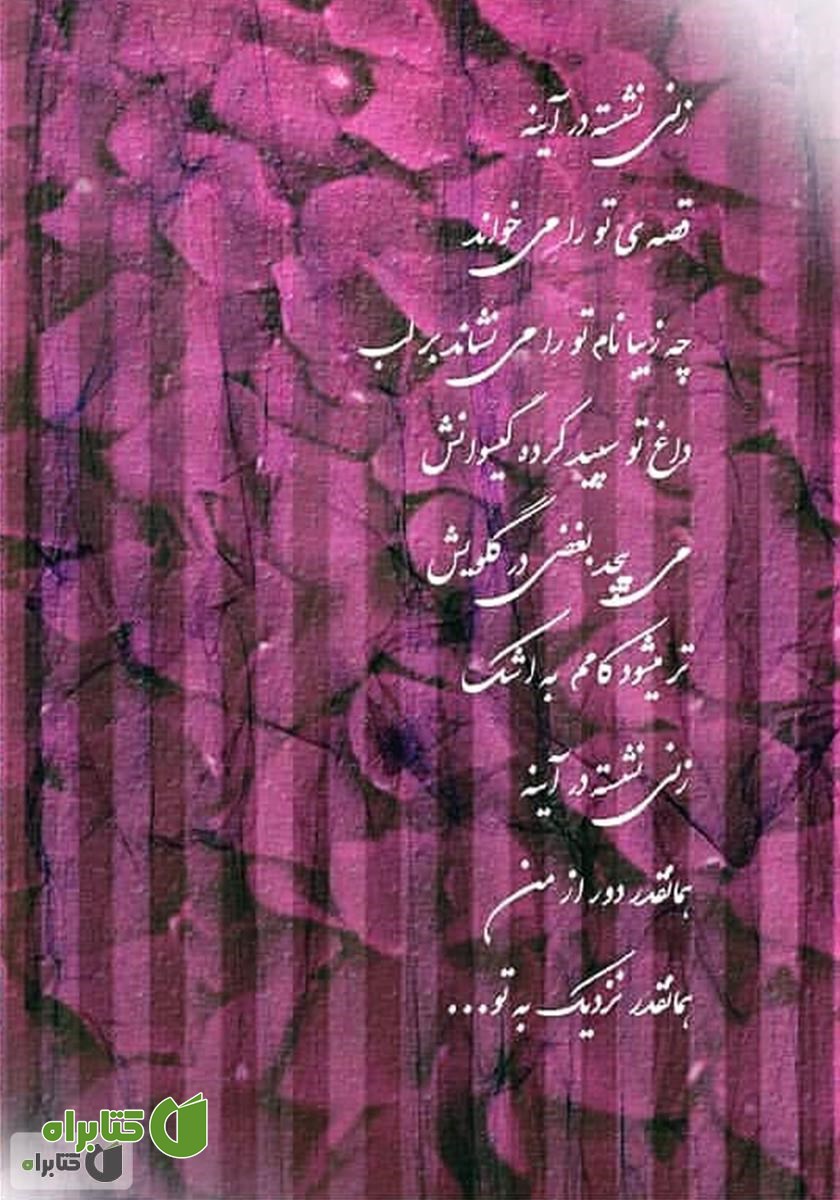 زنی نشسته در آینه
قصه ی تو را می خواند
چه زیبا نام تو را می نشاند بر لب
داغ تو سپید کرده گیسوانش
می پیچد بغضی در گلویش
تر میشود کامم به اشک
زنی نشسته در آینه
همانقدر دور از من
همانقدر نزدیک به تو...
کتابراه
کتابراه